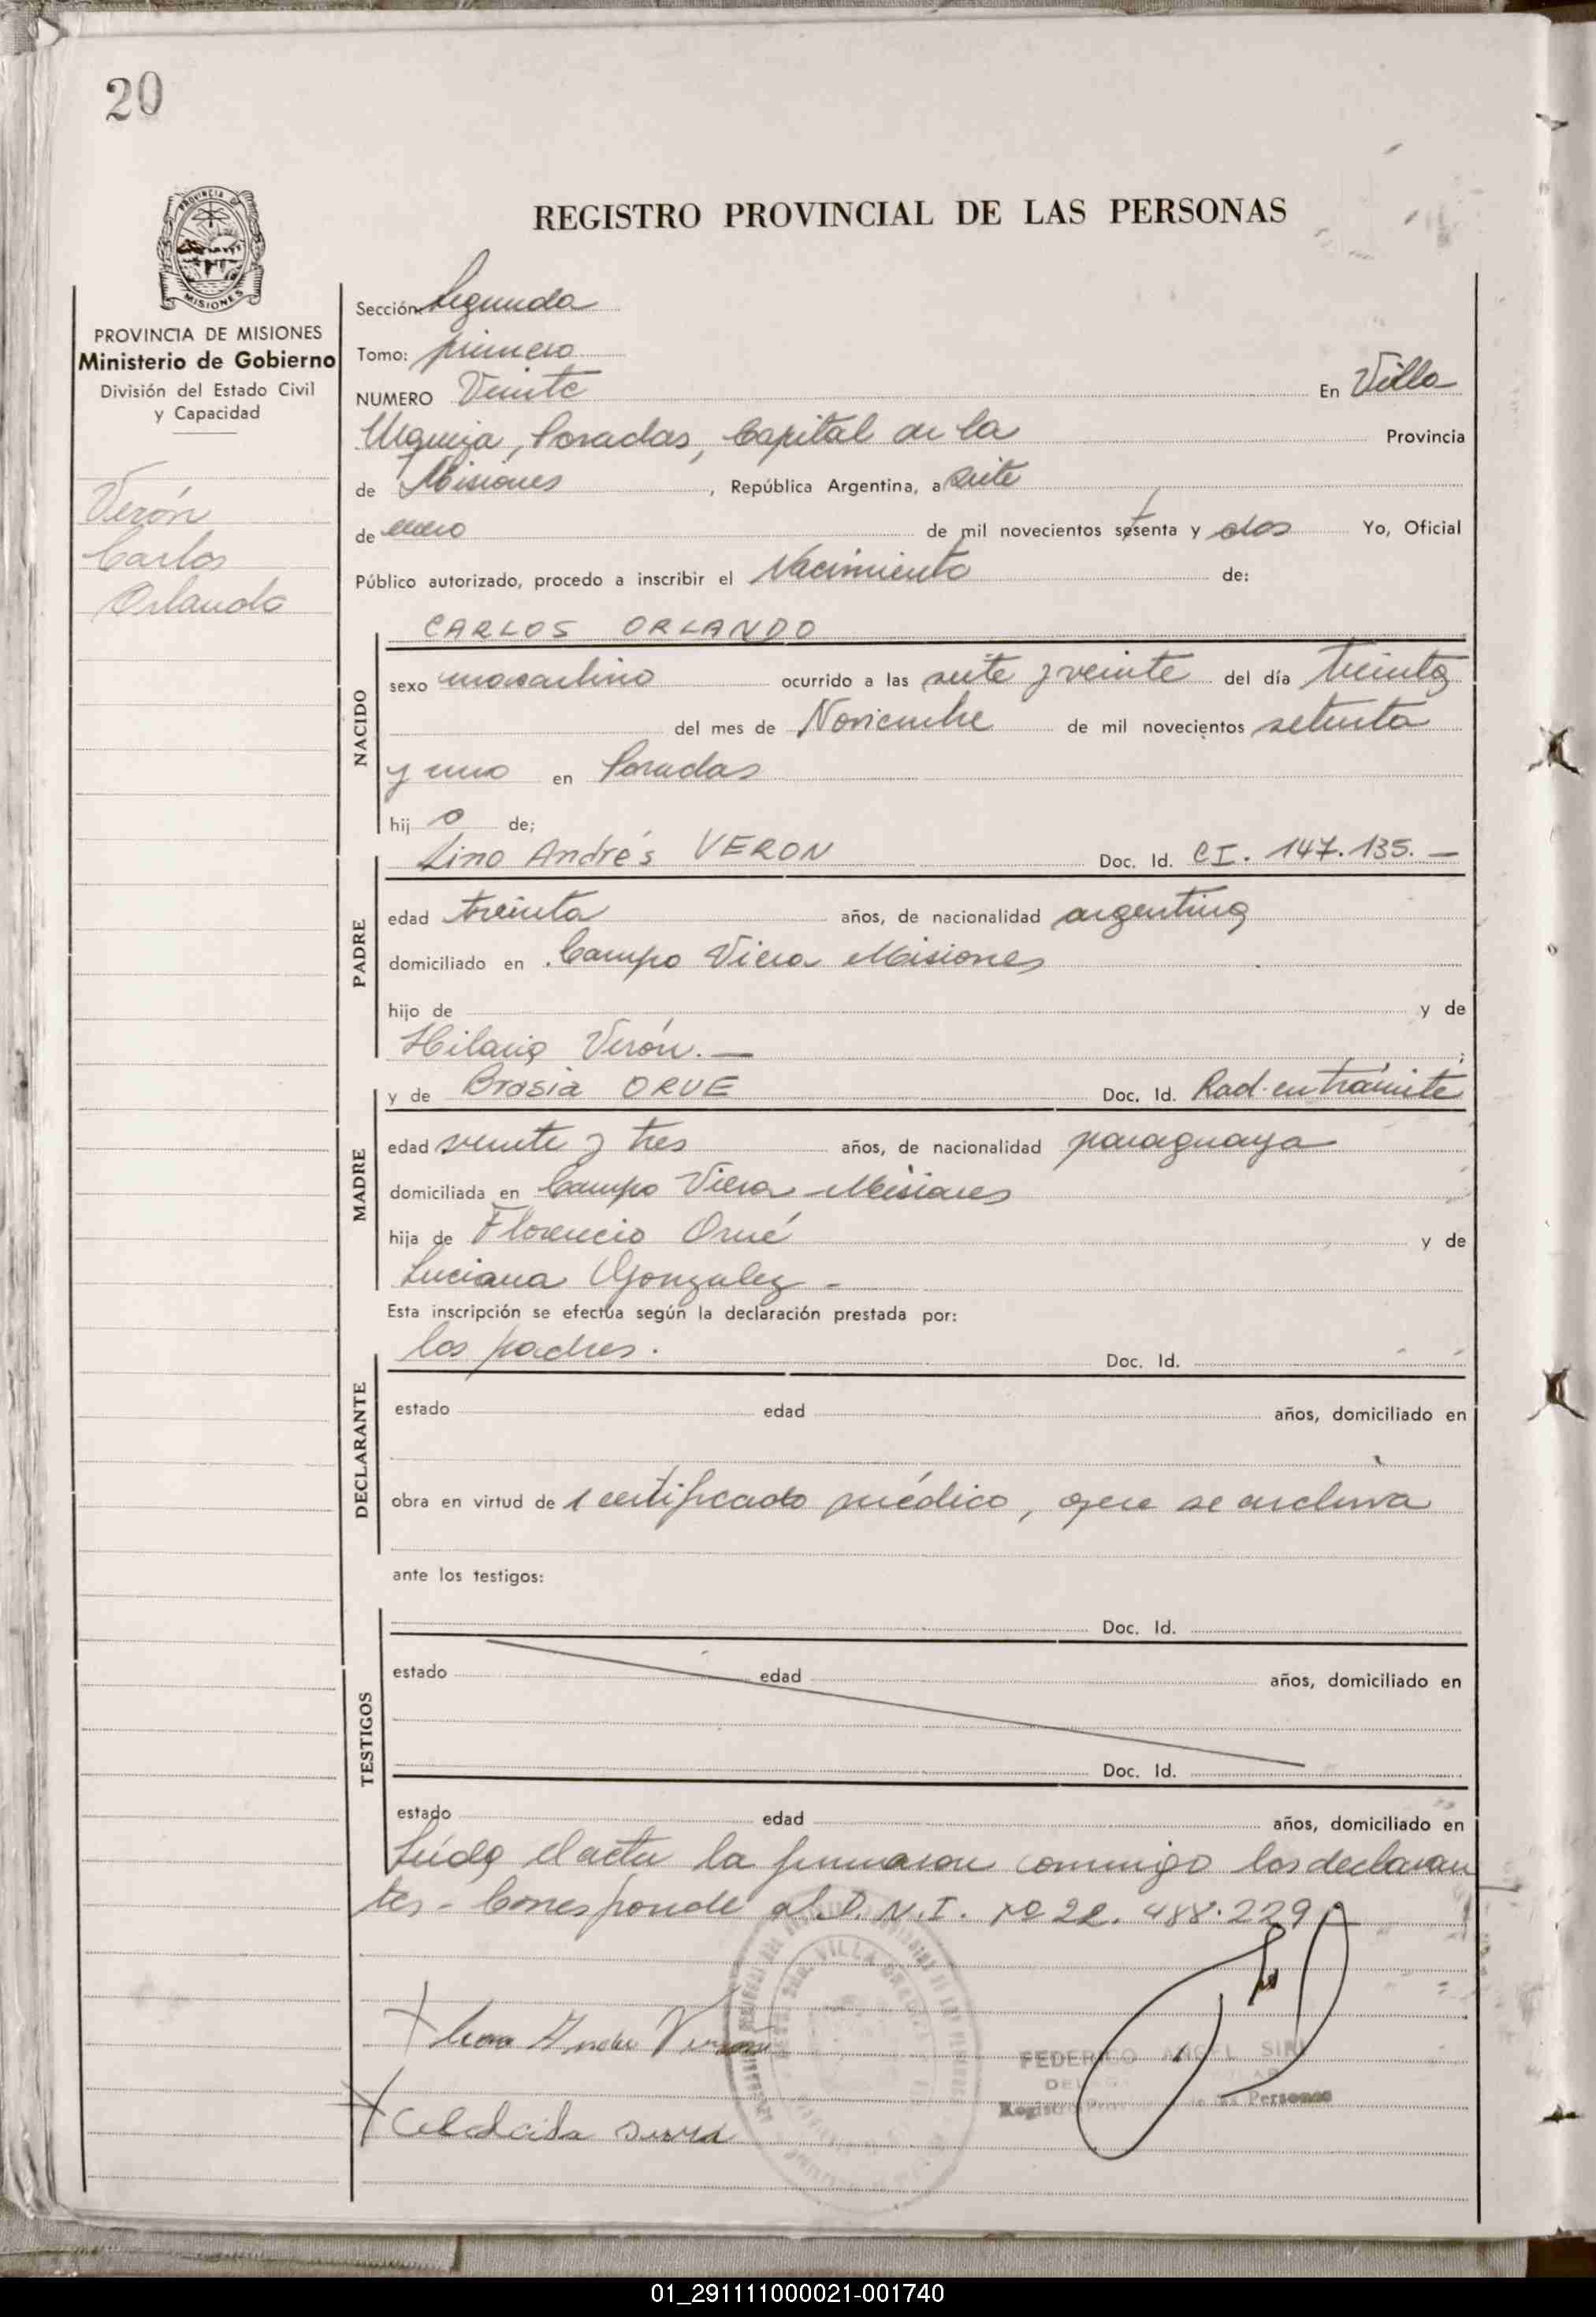 20
PROVINCIA DE
MISIONES
PROVINCIA DE MISIONES
Ministerio de Gobierno
División del Estado Civil
y Capacidad
Verón
Carlos
Orlando
REGISTRO PROVINCIAL DE LAS PERSONAS
Sección Segunda
Tomo: primero
NUMERO Veinte En Villa
Urquiza, Posadas, Capital de la Provincia
de Misiones, República Argentina, a siete
de enero de mil novecientos setenta y dos Yo, Oficial
Público autorizado, procedo a inscribir el Nacimiento de:
CARLOS ORLANDO
NACIDO
sexo masculino ocurrido a las siete y veinte del día treinta
del mes de Noviembre de mil novecientos setenta
y uno en Posadas
hijo de;
Lino Andrés VERON Doc. Id. CI. 147.135.—
PADRE
edad treinta años, de nacionalidad argentina
domiciliado en Campo Viera Misiones
hijo de y de
Hilaria Verón.— ;
y de Brasia ORUE Doc. Id. Rad. en trámite
MADRE
edad veinte y tres años, de nacionalidad paraguaya
domiciliada en Campo Viera Misiones
hija de Florencio Orué y de
Luciana Gonzalez -
Esta inscripción se efectúa según la declaración prestada por:
los padres. Doc. Id.
DECLARANTE
estado edad años, domiciliado en
obra en virtud de 1 certificado médico, que se archiva
ante los testigos:
Doc. Id.
TESTIGOS
estado edad años, domiciliado en
Doc. Id.
estado edad años, domiciliado en
Leída el acta la firmaron conmigo los declaran
tes - Corresponde al D.N.I. Nº 22.488.229
FEDERICO ANGEL
Registro Personas
01_291111000021-001740